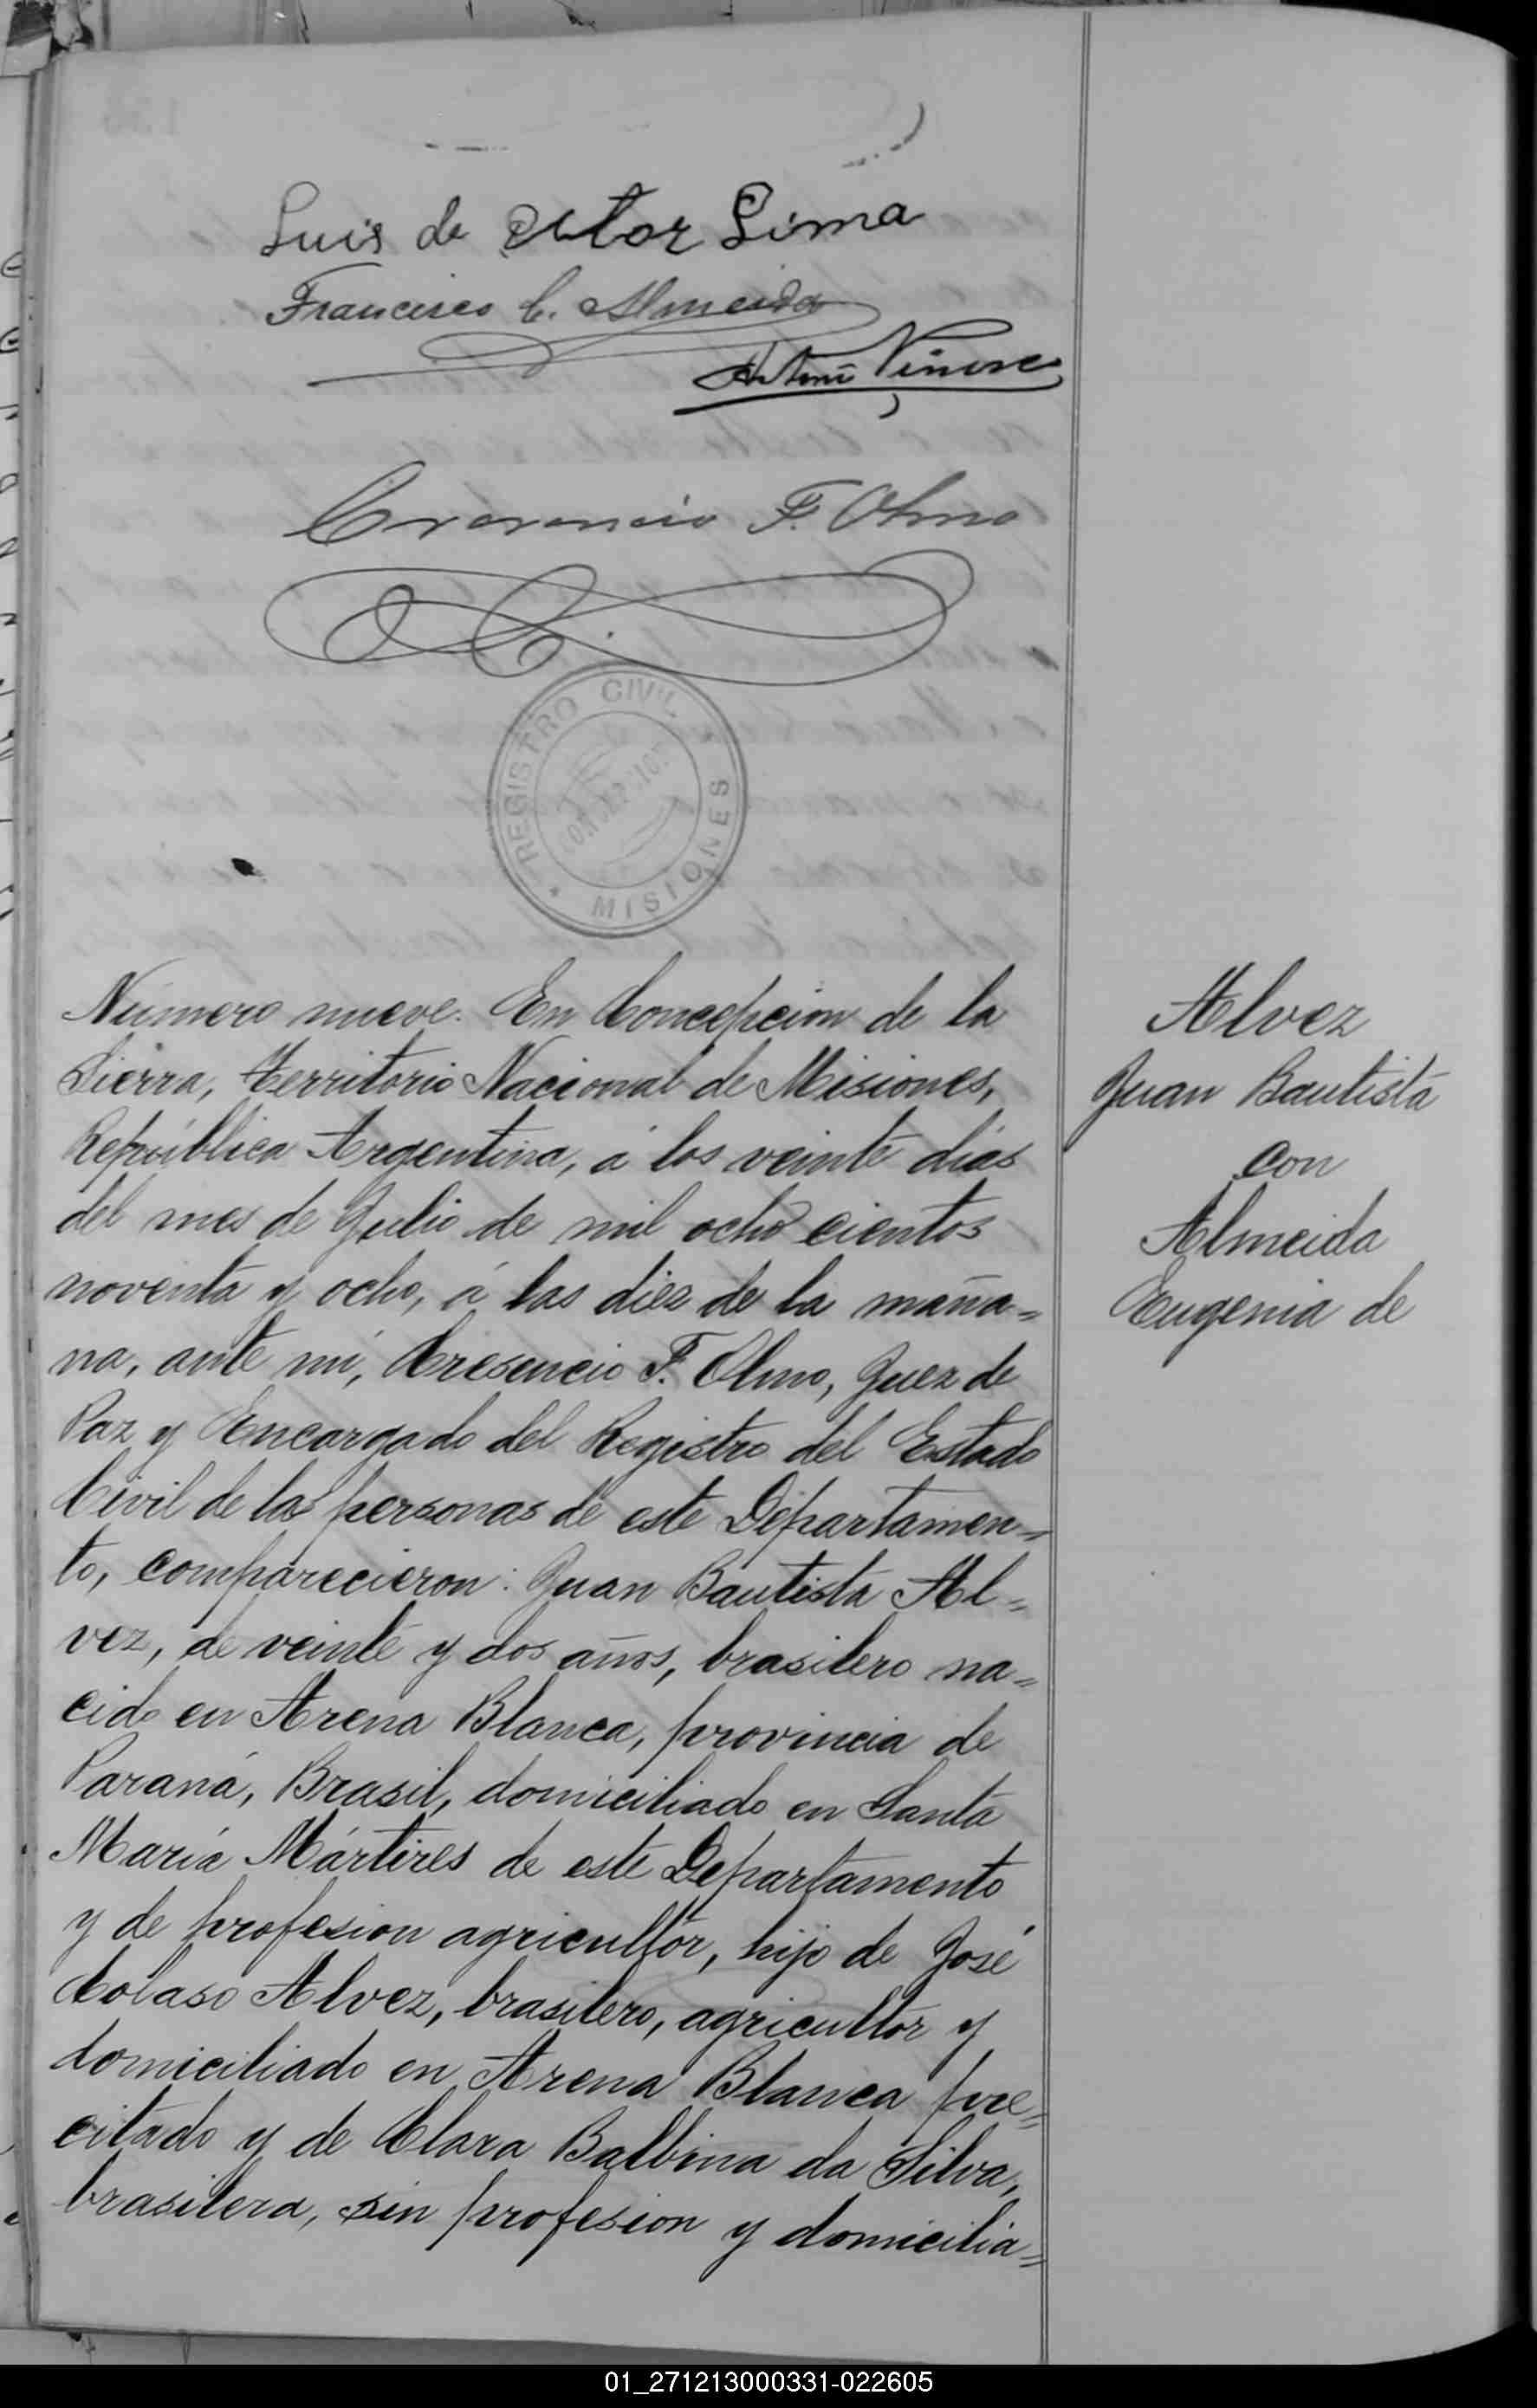 Luis de Lima
Francisco C. Almeida
Cresencio F. Olmo
REGISTRO CIVIL
MISIONES
Número nueve. En Concepcion de la
Sierra, Territorio Nacional de Misiones,
República Argentina, á los veinte dias
del mes de Julio de mil ocho cientos
noventa y ocho, á las diez de la maña=
na, ante mi, Cresencio F. Olmo, Juez de
Paz y Encargado del Registro del Estado
Civil de las personas de este Departamen=
to, comparecieron: Juan Bautista Al=
vez, de veinte y dos años, brasilero na=
cido en Arena Blanca, provincia de
Paraná, Brasil, domiciliado en Santa
María Mártires de este Departamento
y de profesion agricultor, hijo de José
Colaso Alvez, brasilero, agricultor y
domiciliado en Arena Blanca pre=
citado y de Clara Balbina da Silva,
brasilera, sin profesion y domicilia=
Alvez
Juan Bautista
con
Almeida
Eugenia de
01_271213000331-022605